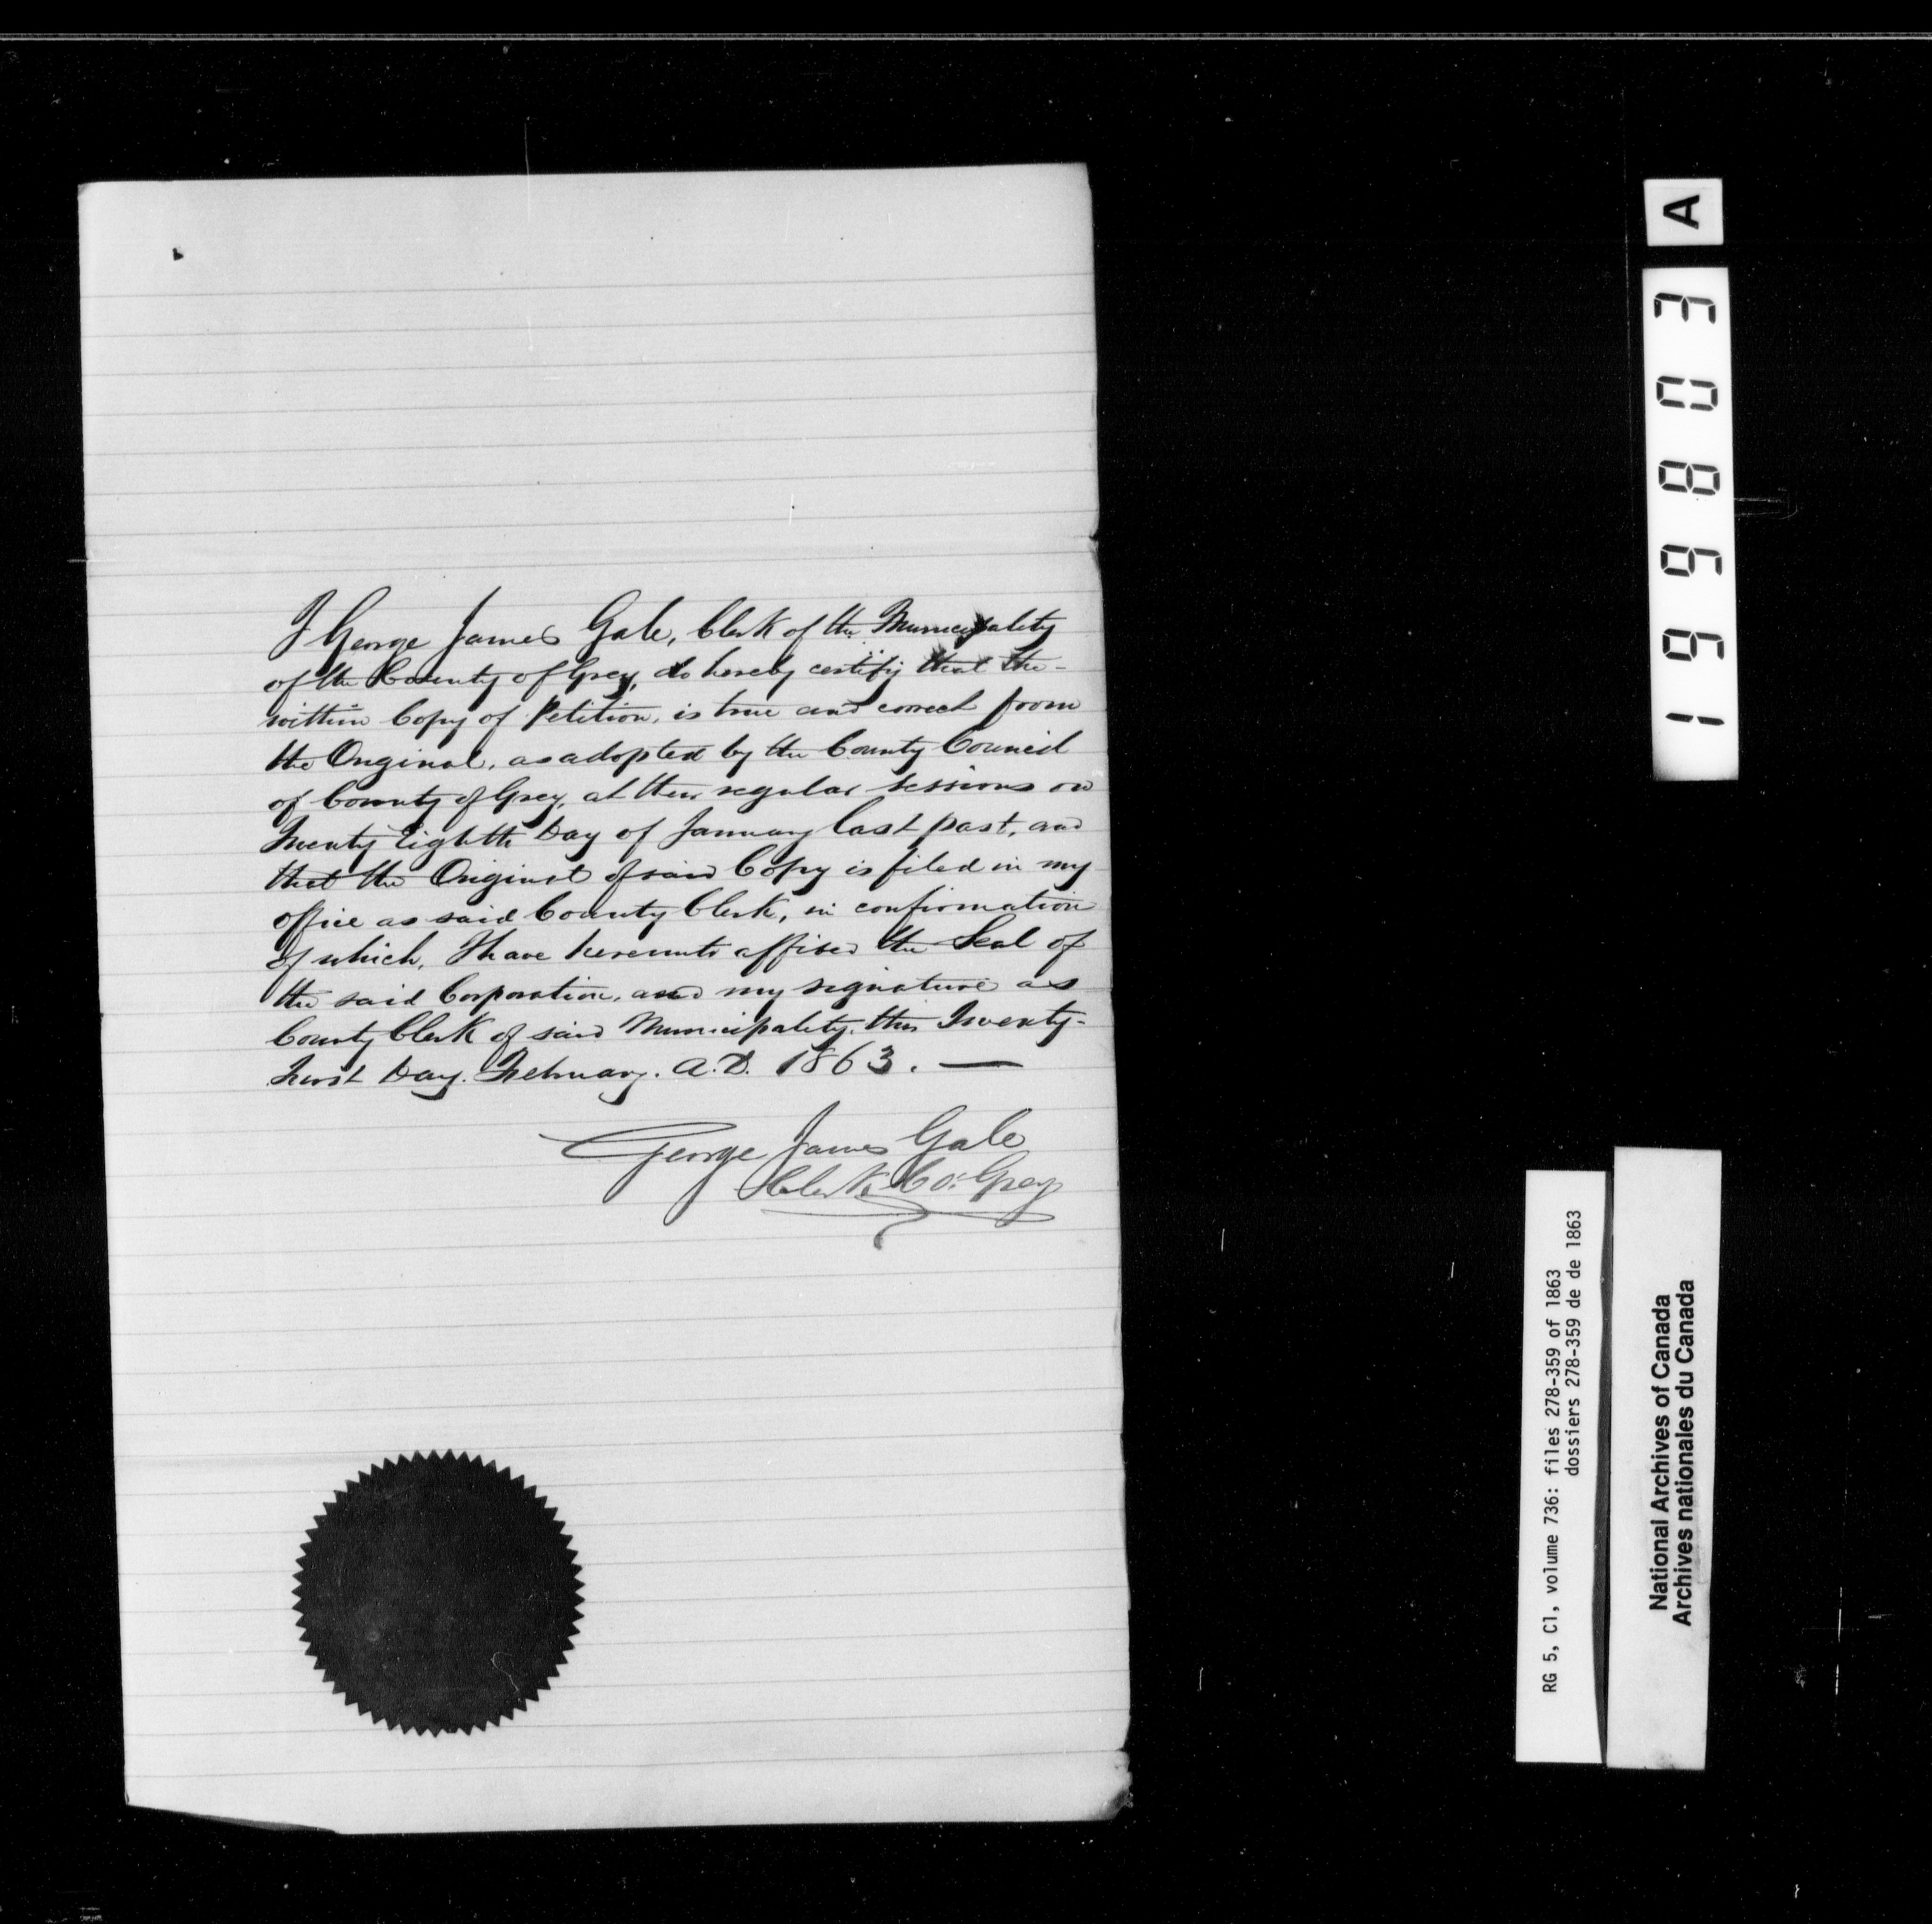 I George James Gale, Clerk of the Municipality
of the County of Grey, do hereby certify that the
within Copy of Petition, is true and correct from
the Original, as adopted by the County Council
of County of Grey, at their regular sessions on
Twenty Eighth Day of January last past, and
that the Original of said Copy is filed in my
office as said County Clerk, in confirmation
of which, I have hereunto affixed the Seal of
the said Corporation, and my signature as
County Clerk of said Municipality, this Twenty-
First Day. February. A.D. 1863. —
George James Gale
Clerk Co: Grey
A
169803
RG 5, C1, volume 736: files 278-359 of 1863
dossiers 278-359 de de 1863
National Archives of Canada
Archives nationales du Canada